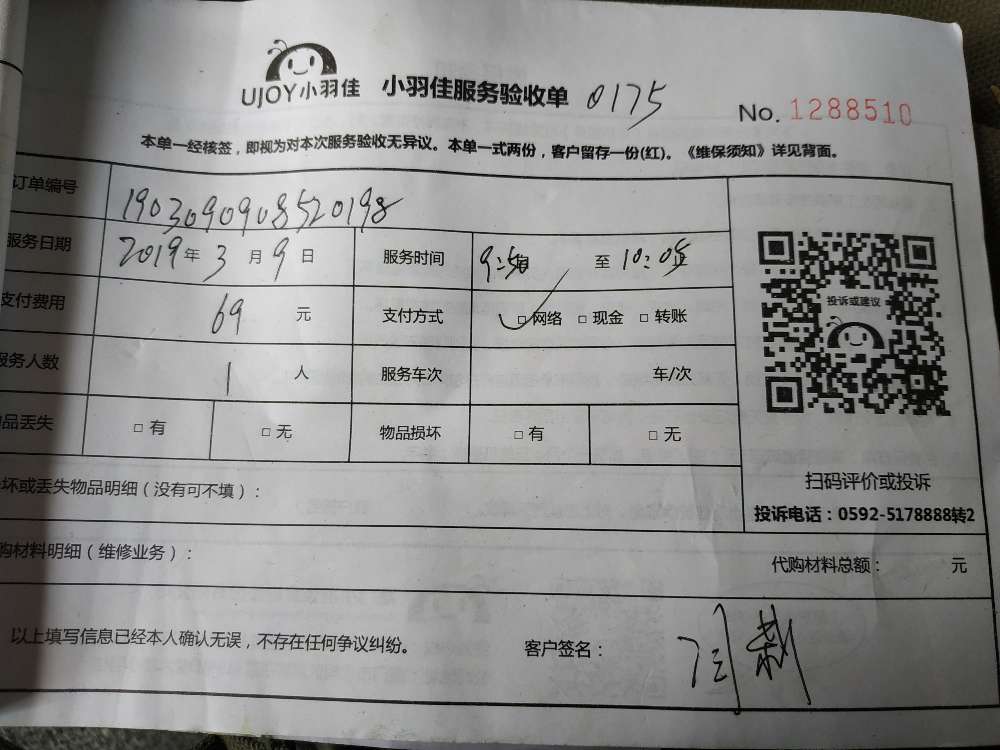 UJOY小羽佳 小羽佳服务验收单 0175 No. 1288510
本单一经核签，即视为对本次服务验收无异议。本单一式两份，客户留存一份(红)。《维保须知》详见背面。
订单编号 1903090908520198
服务日期 2019年3月9日 服务时间 至 10:05
支付费用 69 元 支付方式 □网络 □现金 □转账
服务人数 1 人 服务车次 车/次
品丢失 □有 □无 物品损坏 □有 □无
投诉或建议
扫码评价或投诉
投诉电话：0592-5178888转2
坏或丢失物品明细（没有可不填）：
购材料明细（维修业务）： 代购材料总额： 元
以上填写信息已经本人确认无误，不存在任何争议纠纷。 客户签名：